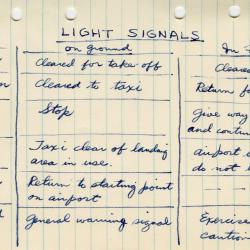 LIGHT SIGNALS
on ground
Cleared for take off
Cleared to taxi
Stop
Taxi clear of landing
area in use.
Return to starting point
on airport
General warning signal
In
Cleared
Return f
Give way
and contin
airport
do not l
Exercise
caution